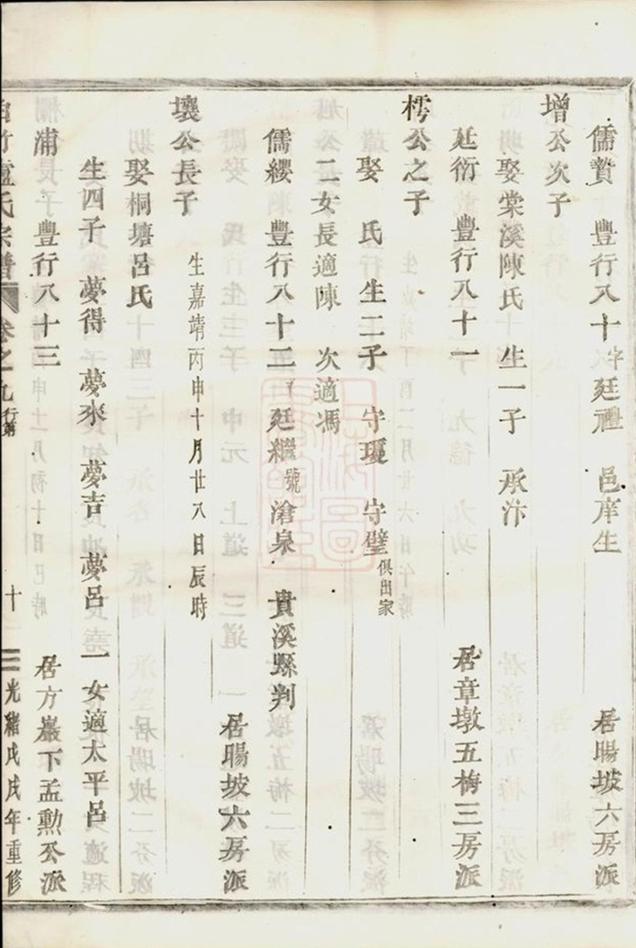 儒贄　豐行八十　字廷禮　邑庠生　居暘坡六房派
增公次子
娶棠溪陳氏　生一子　承汴
延衍　豐行八十一　居章墩五梅三房派
樗公之子
娶　氏　生二子　守瓊　守璧　俱出家
二女長適陳　次適馮
儒纓　豐行八十二　廷繼　號滄泉　貴溪縣判　居暘坡六房派
壤公長子
生嘉靖丙申十月廿八日辰時
娶桐塘呂氏
生四子　夢得　夢來　夢吉　夢呂　一女適太平呂
浦　豐行八十三　居方巖下孟勲公派
盧氏宗譜　卷之九　行第　十　光緒戊戌年重修